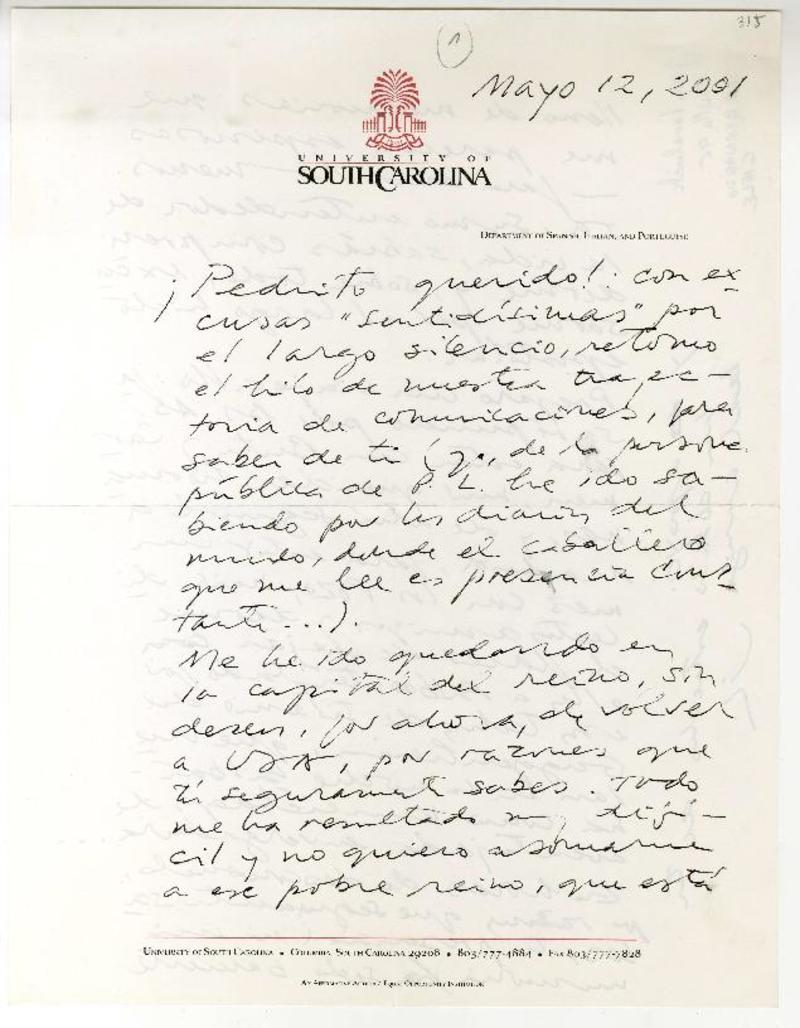 315
1
Mayo 12, 2001
UNIVERSITY OF
SOUTH CAROLINA
DEPARTMENT OF SPANISH, ITALIAN, AND PORTUGUESE
¡Pedrito querido!: con ex-
cusas "sentidísimas" por
el largo silencio, retomo
el hilo de nuestra trayec-
toria de comunicaciones, para
saber de ti (, de la persona
pública de P. L. he ido sa-
biendo por los diarios del
mundo, donde el caballero
que me lee es presencia cons-
tante...).
Me he ido quedando en
la capital del reino, sin
deseos, por ahora, de volver
a USA, por razones que
tú seguramente sabes. Todo
me ha resultado muy difí-
cil y no quiero asomarme
a ese pobre reino, que está
UNIVERSITY OF SOUTH CAROLINA • COLUMBIA, SOUTH CAROLINA 29208 • 803/777-4884 • FAX 803/777-7828
AN AFFIRMATIVE ACTION / EQUAL OPPORTUNITY INSTITUTION